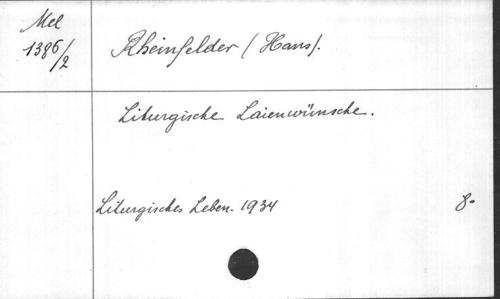 Mel
1386/2
Rheinfelder (Hans).
Liturgische Laienwünsche.
Liturgisches Leben. 1934
8°